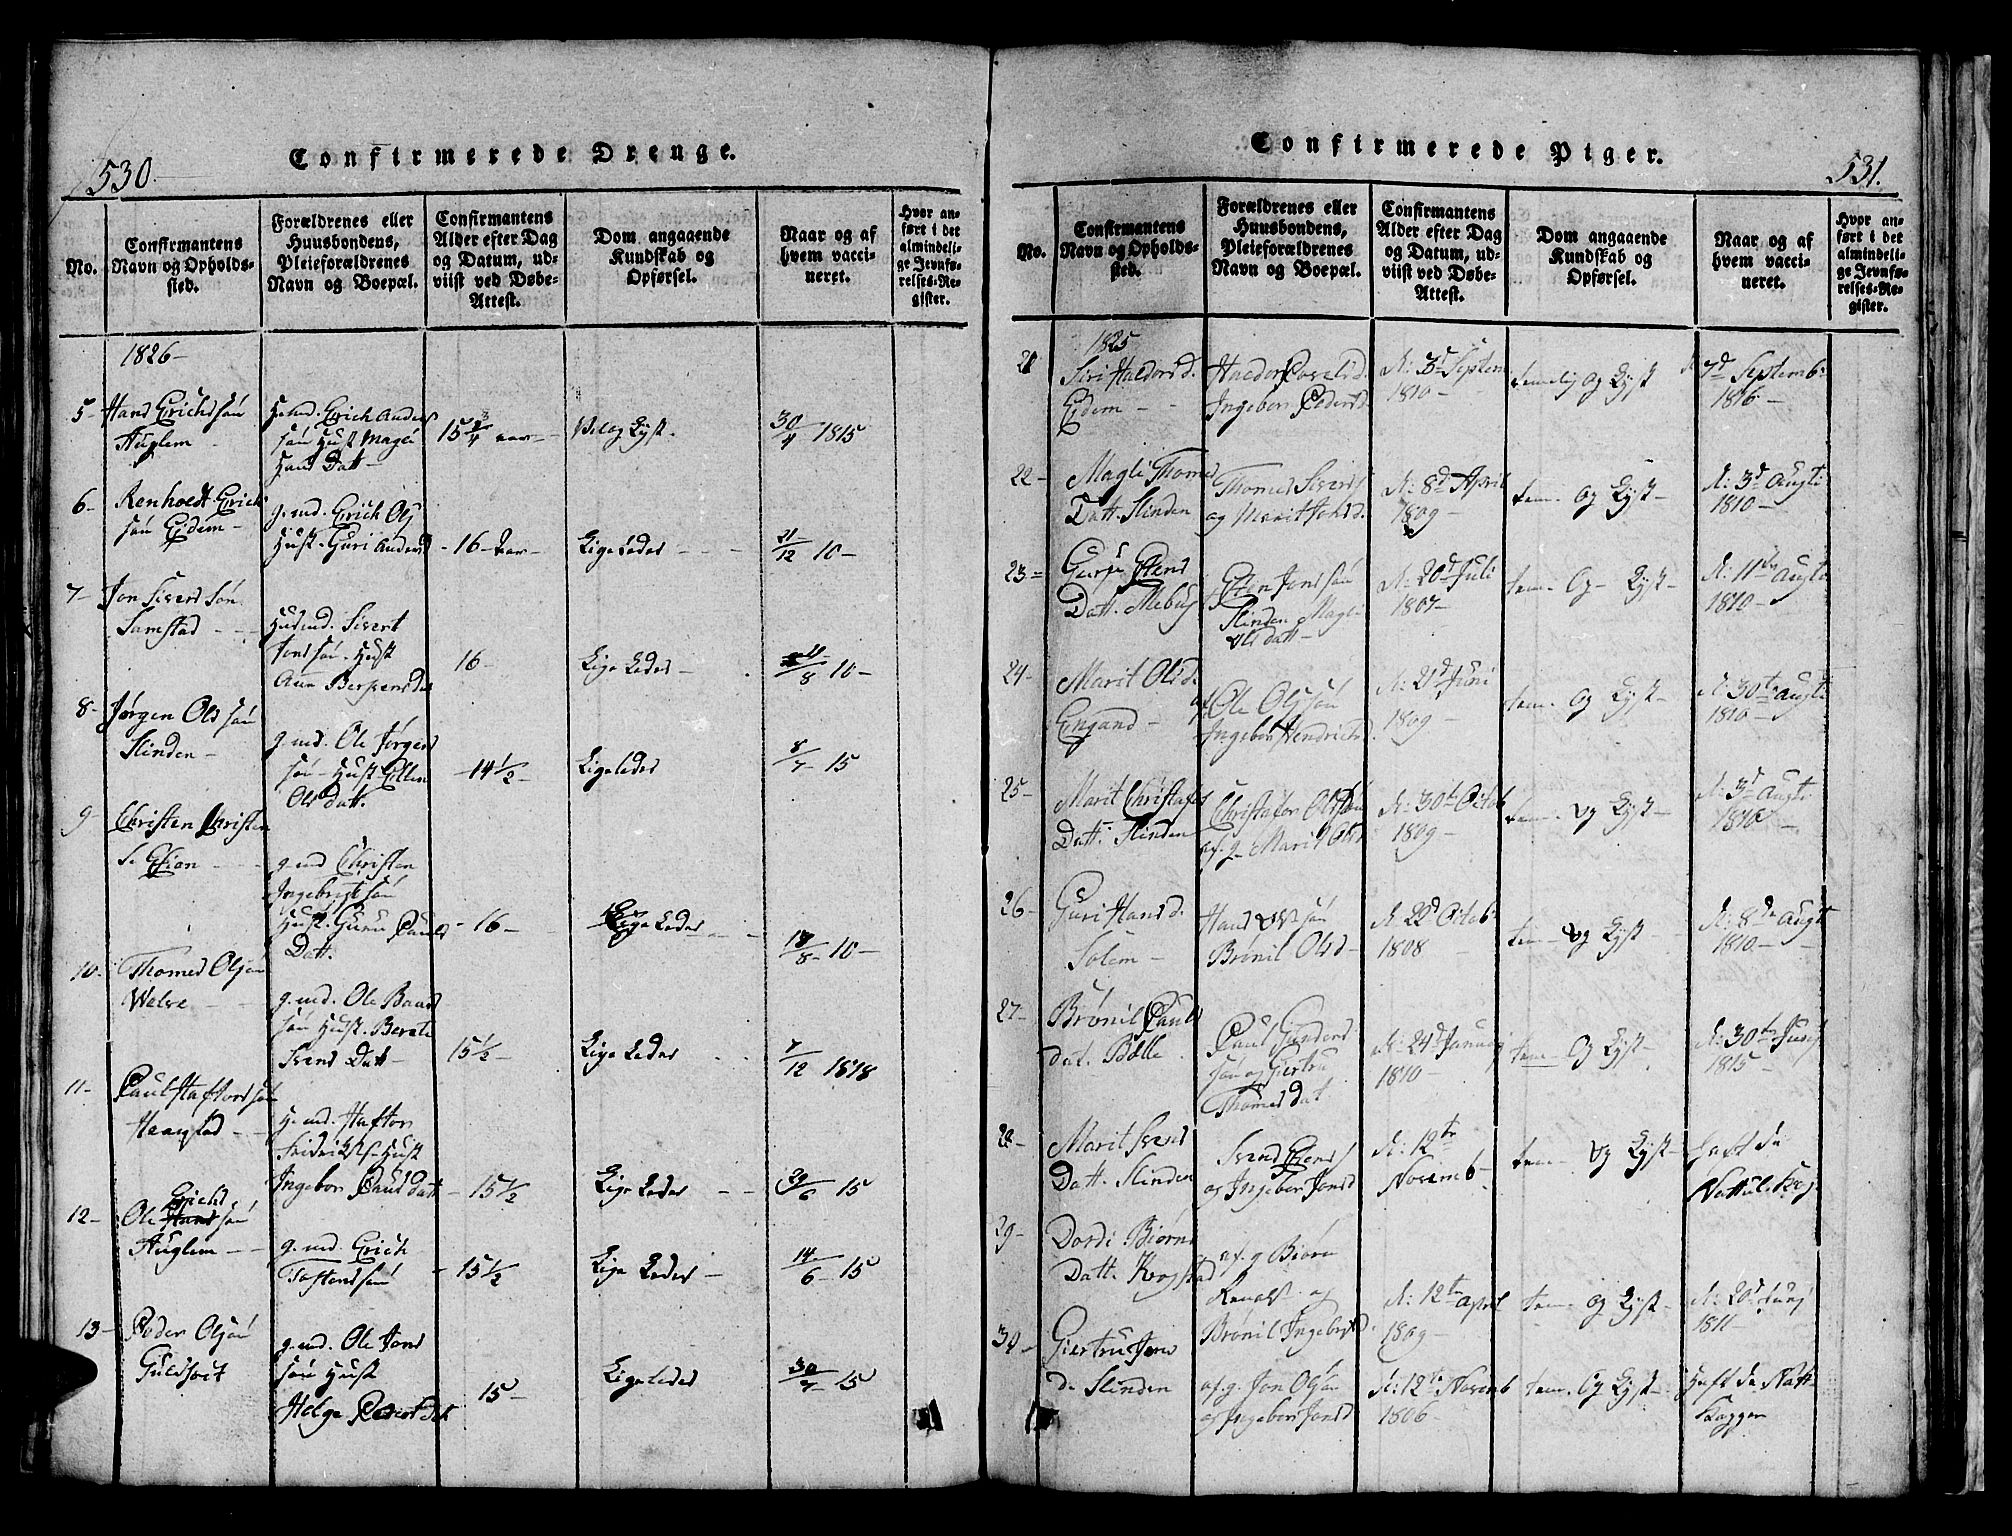 530.
Confirmerede Drenge.
No.
Confirmantens
Navn og Opholds-
sted.
Forældrenes eller
Huusbondens,
Pleieforældrenes
Navn og Boepæl.
Confirmantens
Alder efter Dag
og Datum, ud-
viist ved Døbe-
Attest.
Dom angaaende
Kundskab og
Opførsel.
Naar og af
hvem vacci-
neret.
Hvor an-
ført i det
almindeli-
ge Jevnfø-
relses-Re-
gister.
1826-
5- Hans Erichssön
Auglem
H.md. Erich Anders
sön Hust
Hans Datt-
15 3/4 aar-
Vel og Lyst.
30/4 1815
6- Renhoedt Erich
sön Eidem-
g.md. Erich Ols
Hust. Guri Andersd
-16-aar-
Ligeledes
21/12 10-
7- Jon Siverssön
Samstad
Husmd. Sivert
Jonssön. Hust
Ane
16-
Ligeledes-
8 10-
8- Jørgen Olssön
Slinden-
g.md. Ole Jørgens
sön-Hust Ellen
Olsdatt.
-14 1/2-
Ligeledes
8/7 15
9- Christen Christen
S.
g.md Christen
Ingebrigtsön
Hust. Guru Pauls
Datt.
-16-
Ligeledes
8 10-
10- Thomes Olsön
g.md. Ole
sön Hust. Berete
Svens Datt-
15 1/2-
Ligeledes
7/12 1818
11- Paul Haftorssön
Haagstad
H.md. Haftor
Hust
Ingebor Pauls datt
15 1/2
Ligeledes
15
12- Ole Erichssön
Auglem
g.md. Erich
Tostenssön
-15 1/2
Ligeledes-
14/6 15
13- Peder Olsön
g.md. Ole Jons
sön Hust
Helge Peders datt
15-
Ligeledes
30/7 15
531.
Confirmerede Piger.
No.
Confirmantens
Navn og Opholds-
sted.
Forældrenes eller
Huusbondens,
Pleieforældrenes
Navn og Boepæl.
Confirmantens
Alder efter Dag
og Datum, ud-
viist ved Døbe-
Attest.
Dom angaaende
Kundskab og
Opførsel.
Naar og af
hvem vacci-
neret.
Hvor an-
ført i det
almindeli-
ge Jevnfø-
relses-Re-
gister.
1825
21 Siri Haldorsd.
Eidem
Haldor
Ingebor Pedersd
d: 3d Septem
1810-
temelig Og Lyst
d 7d Septemb:
1816-
22- Magli Thomes
Datt. Slinden
Thomes Siverss
og Marit Jonsd.
d: 8d April
1809
tem- Og Lyst-
d: 3d Augti
1810-
23- Estens
Datt. Mebus
Esten Jonssön
Slinden Magli
Olsdatt-
d: 20d Juli
1807-
tem- Og- Lyst-
d: 11te Augti
1810-
24- Marit Olsd.
Engand-
Ole Olssön
Ingebor Hendrichsd.
d: 21d Juni
1809-
tem- Og Lyst-
d: 30te Augti
1810-
25- Marit Christofers
Datt: Slinden
Christofer Olssön
af. g- Marit Olsd
d: 30te Octob
1809-
tem- og Lyst-
d: 3d Augti
1810-
26- Guri Hansd.
Solem-
Hans Olssön
Brønil Olsd-
d 22d Octob
1808
tem- og Lyst-
d: 8de Augti
1810-
27- Brønil Pauls
dat.
Paul Gunders
sön og Giertru
Thomesdat
d: 24d Januaj
1810-
tem- Og Lyst-
d: 30te
1815-
28- Marit Svens
Datt. Slinden
Svend Estens
og Ingebor Jonsd
d: 12te
Novemb-
tem- og Lyst-
haft de
Nattul. Kop
29- Dordi Biørns
Datt. Krogstad
af. g Biørn
og
Brønil Ingebrgtd.
d: 12te April
1809-
tem- og Lyst-
d: 20d Junj
1811-
30- Giertru Jons
d. Slinden
af. g. Jon Olsön
og Ingebor Jonsd
d: 12te Novemb
1806-
tem- Og Lyst-
Haft de Natt-
Kopper